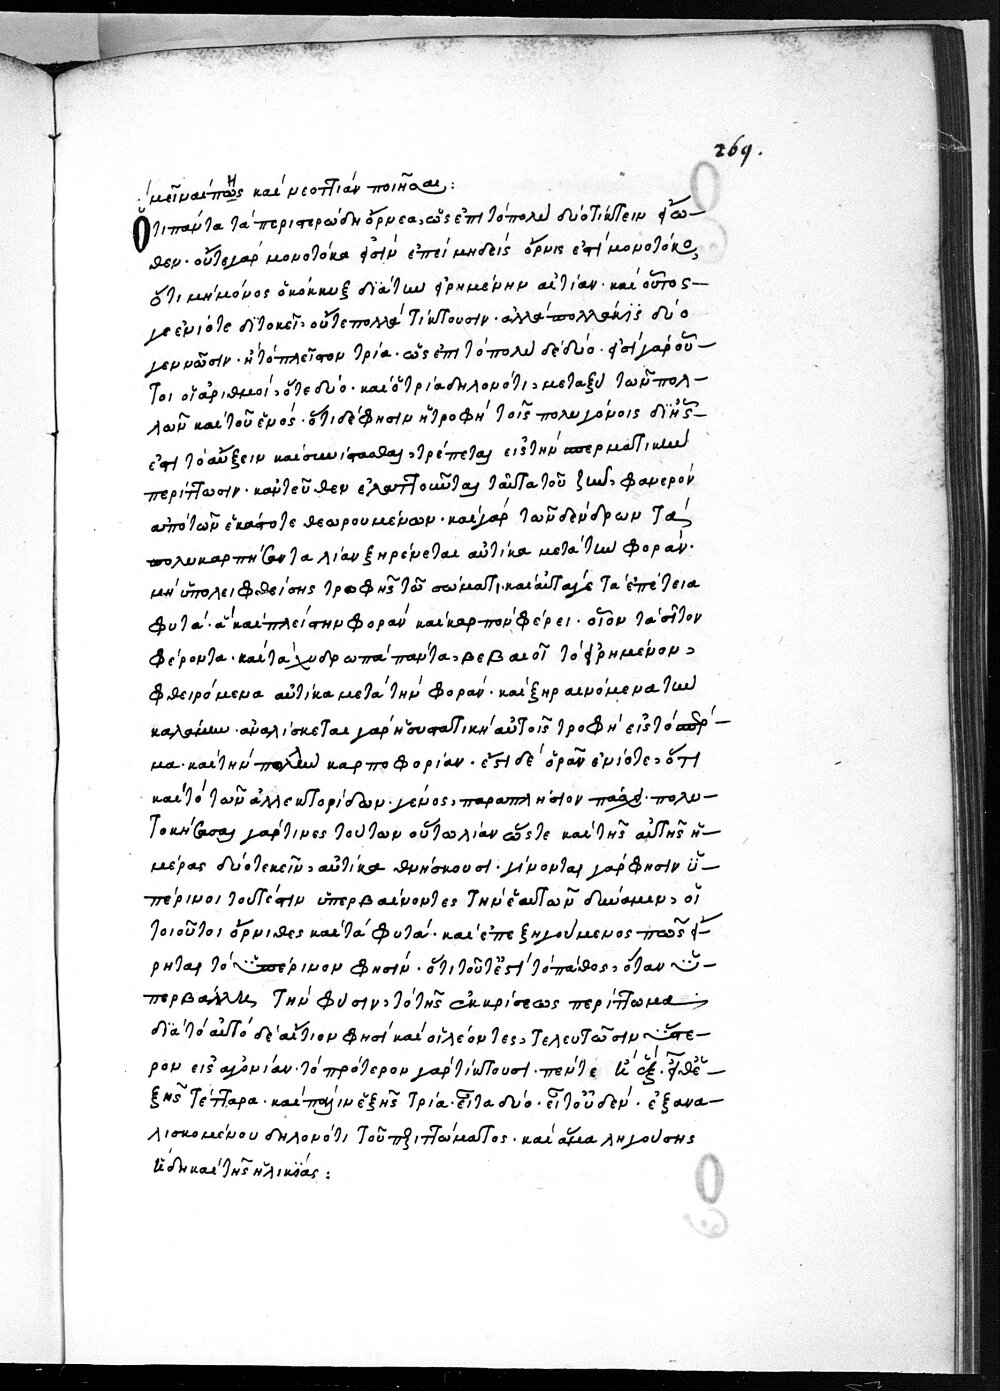 269.
μεῖναί πως ἢ καὶ νεοττιὰν ποιῆσαι:
Ὅτι πάντα τὰ περιστερώδη ὄρνεα, ὡς ἐπιτοπολὺ δύο τίκτειν εἴω-
θεν· οὔτε γὰρ μονοτόκα εἰσὶν ἐπεὶ μηδεὶς ὄρνις ἐστὶ μονοτόκος,
ὅτι μὴ μόνος ὁ κόκκυξ διὰ τὴν εἰρημένην αἰτίαν· καὶ οὗτος
γε ἐνίοτε διτοκεῖ, οὔτε πολλὰ τίκτουσιν· ἀλλὰ πολλάκις δύο
γεννῶσιν· ἢ τὸ πλεῖστον τρία· ὡς ἐπιτοπολὺ δὲ δύο· εἰσὶ γὰρ οὗ-
τοι οἱ ἀριθμοὶ, ὅτε δύο· καὶ ὁ τρία δηλονότι, μεταξὺ τῶν πολ-
λῶν καὶ τοῦ ἑνός· ὅτι δὲ φησὶν ἡ τροφὴ τοῖς πολυγόνοις δι' ἧς
ἐστὶ τὸ αὔξειν καὶ συνίστασθαι, τρέπεται εἰς τὴν σπερματικὴν
περίττωσιν· κἀντεῦθεν ἐλαττοῦνται ταῦτα τοῦ ζῆν, φανερὸν
ἀπὸ τῶν ἑκάστοτε θεωρουμένων· καὶ γὰρ τῶν δένδρων τὰ
πολυκαρπήσαντα λίαν ξηραίνεται αὐτίκα μετὰ τὴν φοράν·
μὴ ὑπολειφθείσης τροφῆς τῷ σώματι· καὶ αὐτά γε τὰ ἐπέτεια
φυτὰ· ἃ καὶ πλείστην φορὰν καὶ καρπὸν φέρει· οἷον τὰ σῖτον
φέροντα· καὶ τὰ χυδρωπὰ πάντα, βεβαιοῖ τὸ εἰρημένον,
φθειρόμενα αὐτίκα μετὰ τὴν φοράν· καὶ ξηραινόμενα τὴν
καλάμην· ἀναλίσκεται γὰρ ἡ συστατικὴ αὐτοῖς τροφὴ εἰς τὸ σπέρ-
μα· καὶ τὴν πολλὴν καρποφορίαν· ἔστι δὲ ὁρᾶν ἐνίοτε, ὅτι
καὶ τὸ τῶν ἀλλεκτορίδων γένος, παραπλήσιον πάσχει· πολυ-
τοκήσασαι γάρ τινες τούτων οὕτω λίαν ὥστε καὶ τῆς αὐτῆς ἡ-
μέρας δύο τεκεῖν, αὐτίκα θνήσκουσι· γίνονται γάρ φησιν ὑ-
πέρινοι τουτέστιν ὑπερβαίνοντες τὴν ἑαυτῶν δύναμιν, οἱ
τοιοῦτοι ὄρνιθες καὶ τὰ φυτά· καὶ ἐπεξηγούμενος πῶς εἴ-
ρηται τὸ ὑπέρινον φησίν· ὅτι τοῦτ' ἔστι τὸ πάθος, ὅταν ὑ-
περβάλλῃ τὴν φύσιν, τὸ τῆς ἐκκρίσεως περίττωμα,
διὰ τὸ αὐτὸ δὲ αἴτιον φησὶ καὶ οἱ λέοντες, τελευτῶσιν ὕστε-
ρον εἰς ἀγονίαν· τὸ πρότερον γὰρ τίκτουσι· πέντε καὶ ἕξ· εἶθ' ἑ-
ξῆς τέτταρα· καὶ πάλιν ἑξῆς τρία· εἶτα δύο· εἶτ' οὐδέν· ἐξανα-
λισκομένου δηλονότι τοῦ περιττώματος· καὶ ἅμα ληγούσης
ἤδη καὶ τῆς ἡλικίας: